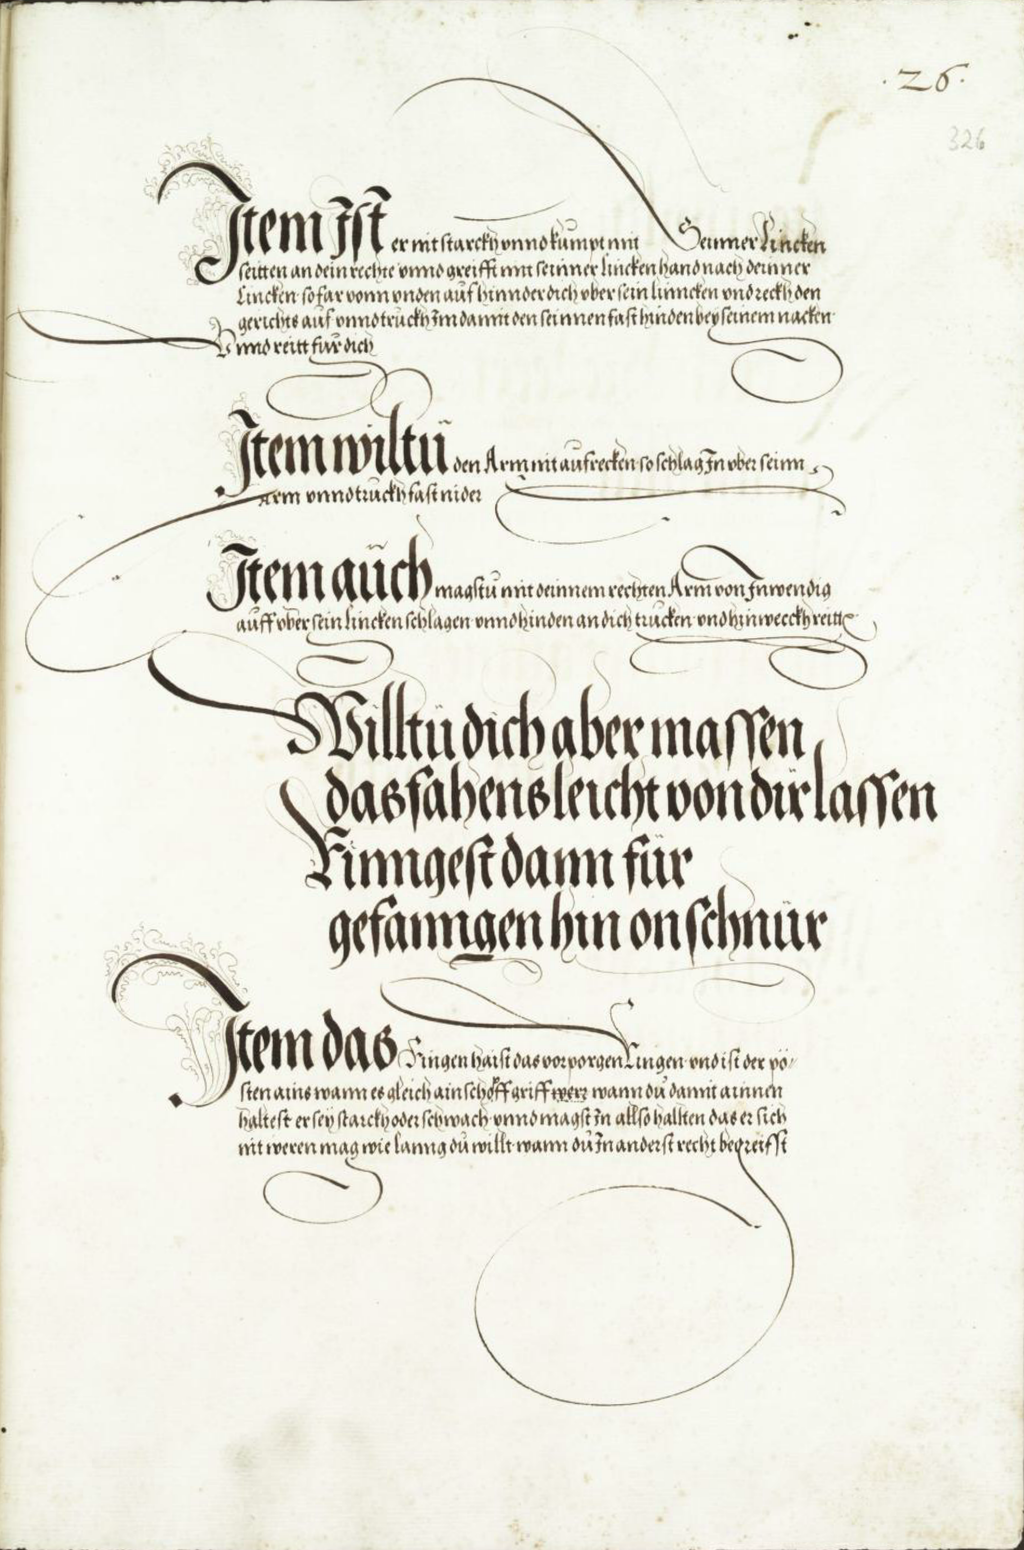 .26.
326
Item Ist er nit starckh vnnd kumpt mit Seinner Lincken
seitten an dein rechte vnnd greifft mit seinner lincken hand nach deinner
Lincken so far vonn vnden auf hinnder dich vber sein linncken vnd reckh den
gerichts auf vnnd truckh Im damit den seinnen fast hinden bey seinem nacken
Vnnd reitt für dich
Item wiltu den Arm nit aufrecken so schlag In vber seinn
Arm vnnd truckh fast nider
Item auch magstu mit deinnem rechten Arm von Inwendig
auff vber sein Lincken schlagen vnnd hinden an dich trucken vnd hinweeckh reitt
Willtu dich aber massen
das fahens leicht von dir lassen
Rinngest dann für
gefanngen hin on schnür
Item das Ringen haist das vorporgen Ringen vnd ist der pö
sten ains wann es gleich ain schoff griff werr wann du damit ainnen
haltest er sey starckh oder schwach vnnd magst In allso hallten das er sich
nit weren mag wie lanng du willt wann du In anderst recht begreifst